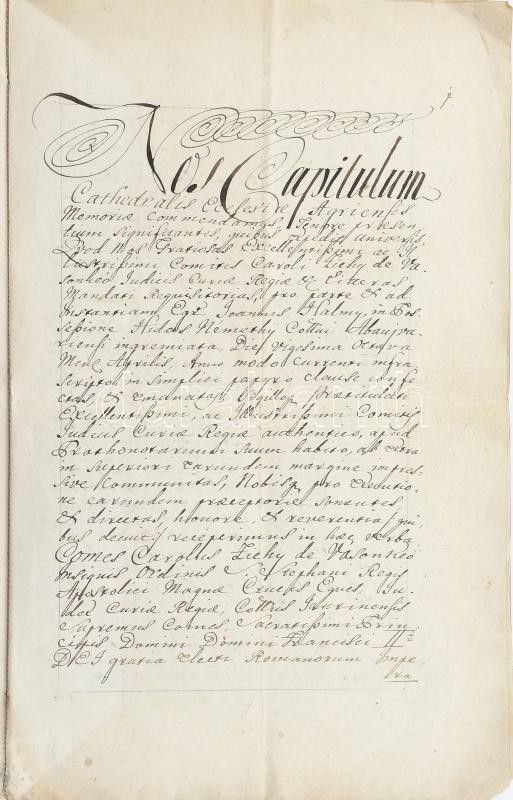 1.
Nos Capitulum
Cathedralis Ecclesiæ Agriensis
Memoriæ Commendamus, Tenore præsen
tium Significantes, quibus expedit Universis,
Quod Nos Gratiosas Excellentissimi ac Il
lustrissimi Comitis Caroli Zichy de Va
sonkeö Judicis Curiæ Regiæ & Litteras
Mandati Requisitorias, pro parte & ad
Instantiam Egr. Joannis Halmy, in Pos
sessione Hidas Nemethy Cottui Abaujva
riensi ingremiata, Die Vigesima Octava
Mens. Aprilis, Anno modo Currenti infra
Scripto in Simplici papyro clause confe
ctas, & emanatas, Sigilloq Prætitulati
Excellentissimi, ac Illustrissimi Comitis
Judicis Curiæ Regiæ authentico, apud
Prothonotarium Suum habito, ab extra
in Superiori earundem margine impres
sive Communitas, Nobisq pro Executio
ne earundem præceptorie Sonantes
& directas, honore, & reverentia/ qui
bus decuit/ receperimus in hæc verba
Comes Carolus Zichy de Vásonkeö
Insignis Ordinis S. Stephani Regis
Apostolici Magnæ Crucis Eques, Ju
dex Curiæ Regiæ, Cottus Jaurinensis
Supremus Comes, Sacratissimi Prin
cipis Domini Domini Francisci II
DEI gratia Electi Romanorum Impe
ra